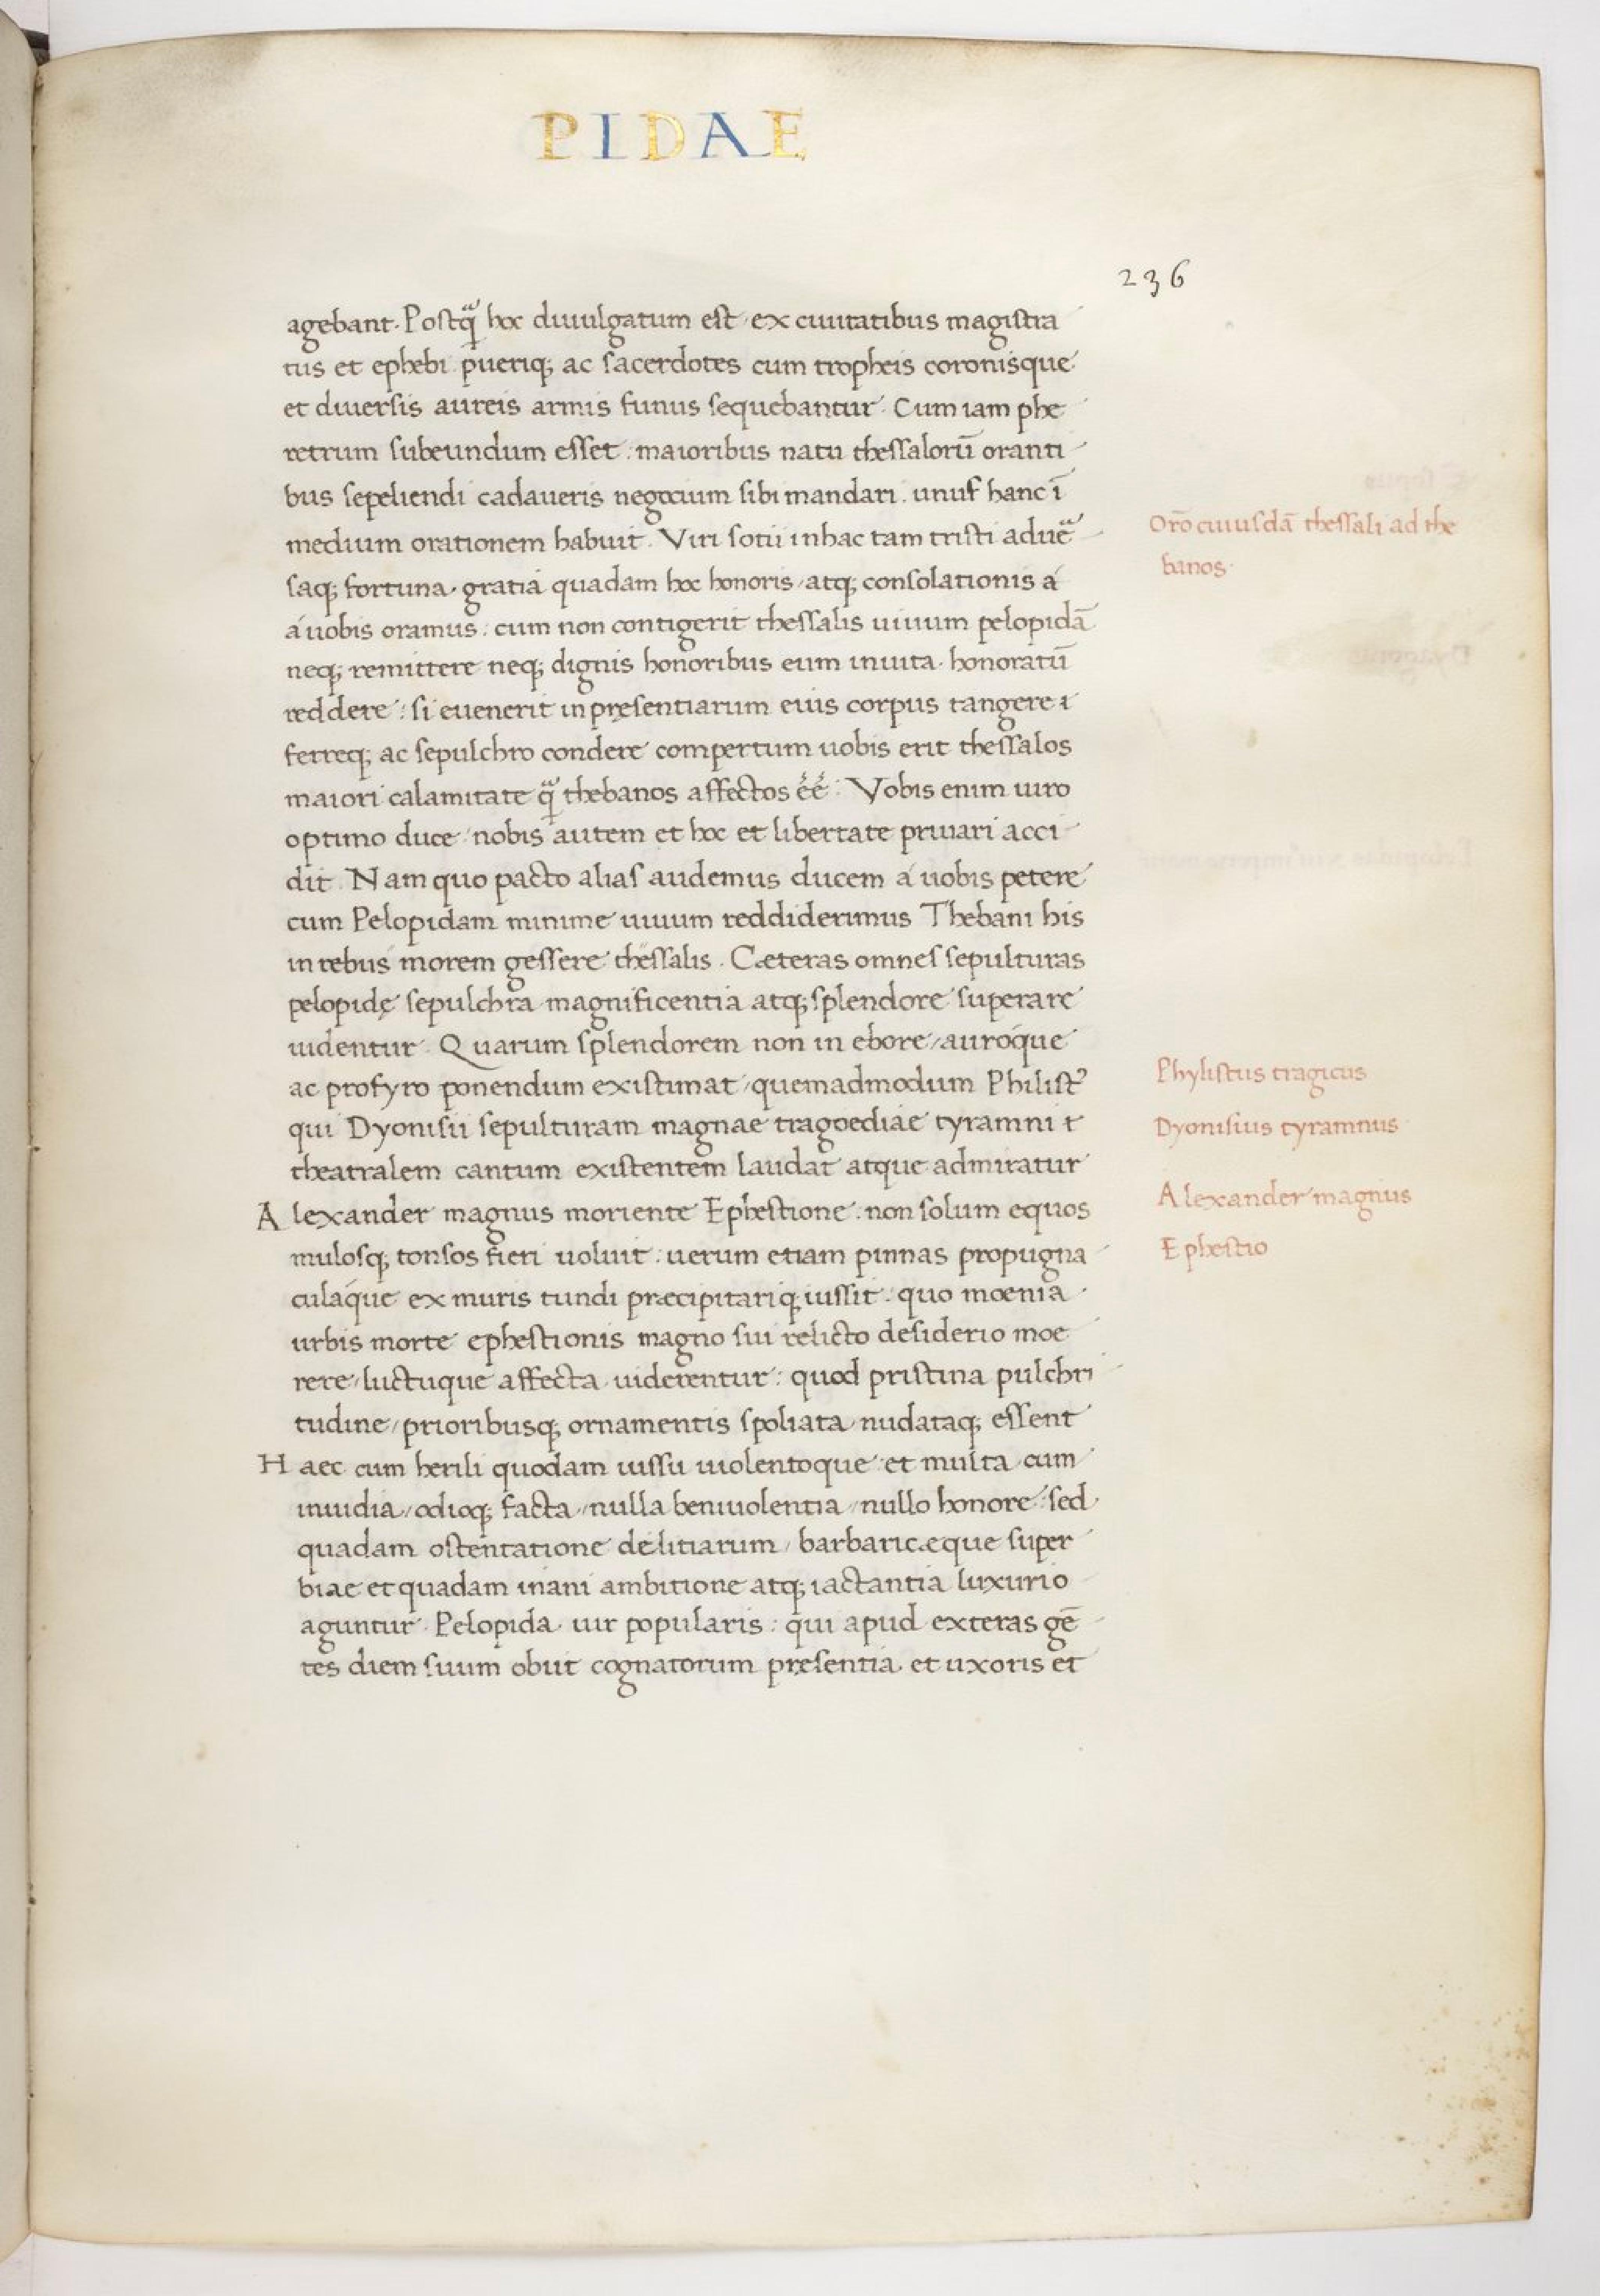 PIDAE
236
agebant. Postq̃ hoc diuulgatum est ex ciuitatibus magistra
tus et ephebi pueriq; ac sacerdotes cum tropheis coronisque
et diuersis aureis armis funus sequebantur. Cum iam phe
retrum subeundum esset: maioribus natu thessalorū oranti
bus sepeliendi cadaueris negocium sibi mandari. unus hanc ī
medium orationem habuit. Viri sotii in hac tam tristi aduẽ
saq; fortuna, gratia quadam hoc honoris, atq; consolationis á
á uobis oramus: cum non contigerit thessalis uiuum pelopidā
neq; remittere neq; dignis honoribus eum in uita honoratū
reddere: si euenerit in pręsentiarum eius corpus tangere ⁊
ferreq; ac sepulchro condere compertum uobis erit thessalos
maiori calamitate q̃ thebanos affectos eẽ: Vobis enim uiro
optimo duce nobis autem et hoc et libertate priuari acci
dit. Nam quo pacto alias audemus ducem á uobis petere
cum Pelopidam minime uiuum reddiderimus Thebani his
in rebus morem gessere thessalis. Cæteras omnes sepulturas
pelopidę sepulchra magnificentia atq; splendore superare
uidentur. Quarum splendorem non in ebore, auróque
ac profyro ponendum existimat, quemadmodum Philistꝰ
qui Dyonisii sepulturam magnae tragoediae tyramni ⁊
theatralem cantum existentem laudat atque admiratur
Alexander magnus moriente Ephestione: non solum equos
mulosq; tonsos fieri uoluit: uerum etiam pinnas propugna
culáque ex muris tundi præcipitariq; iussit: quo moenia
urbis morte ephestionis magno sui relicto desiderio moe
rere, luctuque affecta uiderentur: quod pristina pulchri
tudine, prioribusq; ornamentis spoliata nudataq; essent
Haec cum herili quodam iussu uiolentoque: et multa cum
inuidia, odioq; facta, nulla beniuolentia, nullo honore: sed
quadam ostentatione delitiarum, barbaricæque super
biae et quadam inani ambitione atq; iactantia luxurio
aguntur. Pelopida uir popularis: qui apud exteras gē
tes diem suum obiit cognatorum pręsentia et uxoris et
Orō cuiusdā thessali ad the
banos.
Phylistus tragicus
Dyonisius tyramnus
Alexander magnus
Ephestio